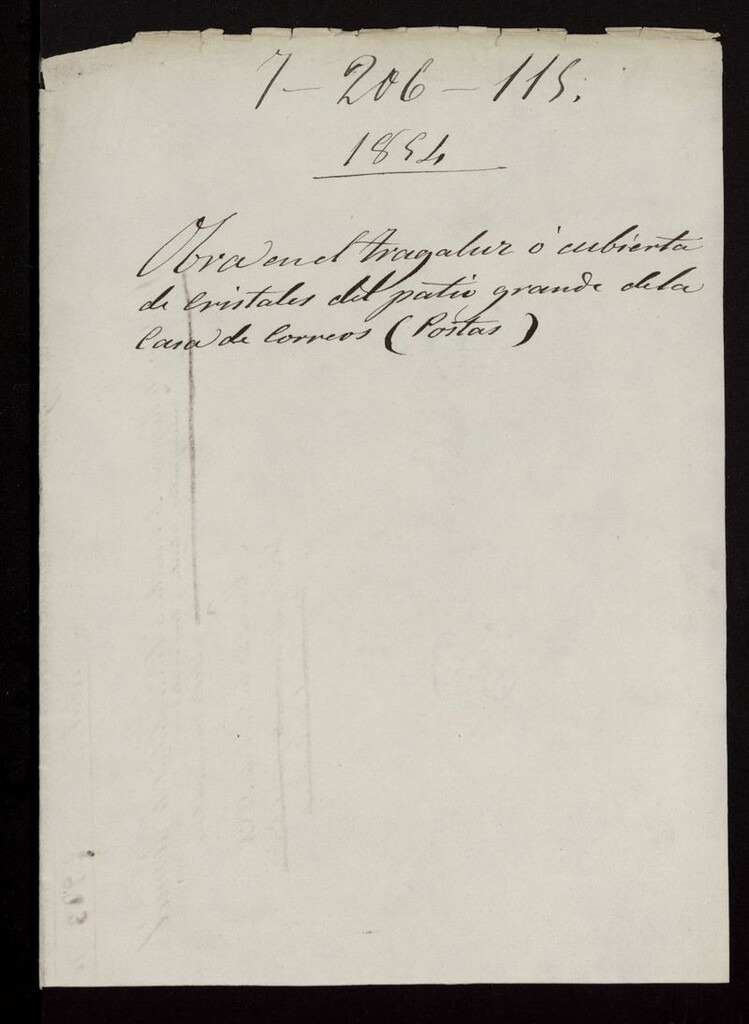 7 - 206 - 115.
1854
Obra en el tragaluz ó cubierta
de cristales del patio grande de la
Casa de Correos (Postas)